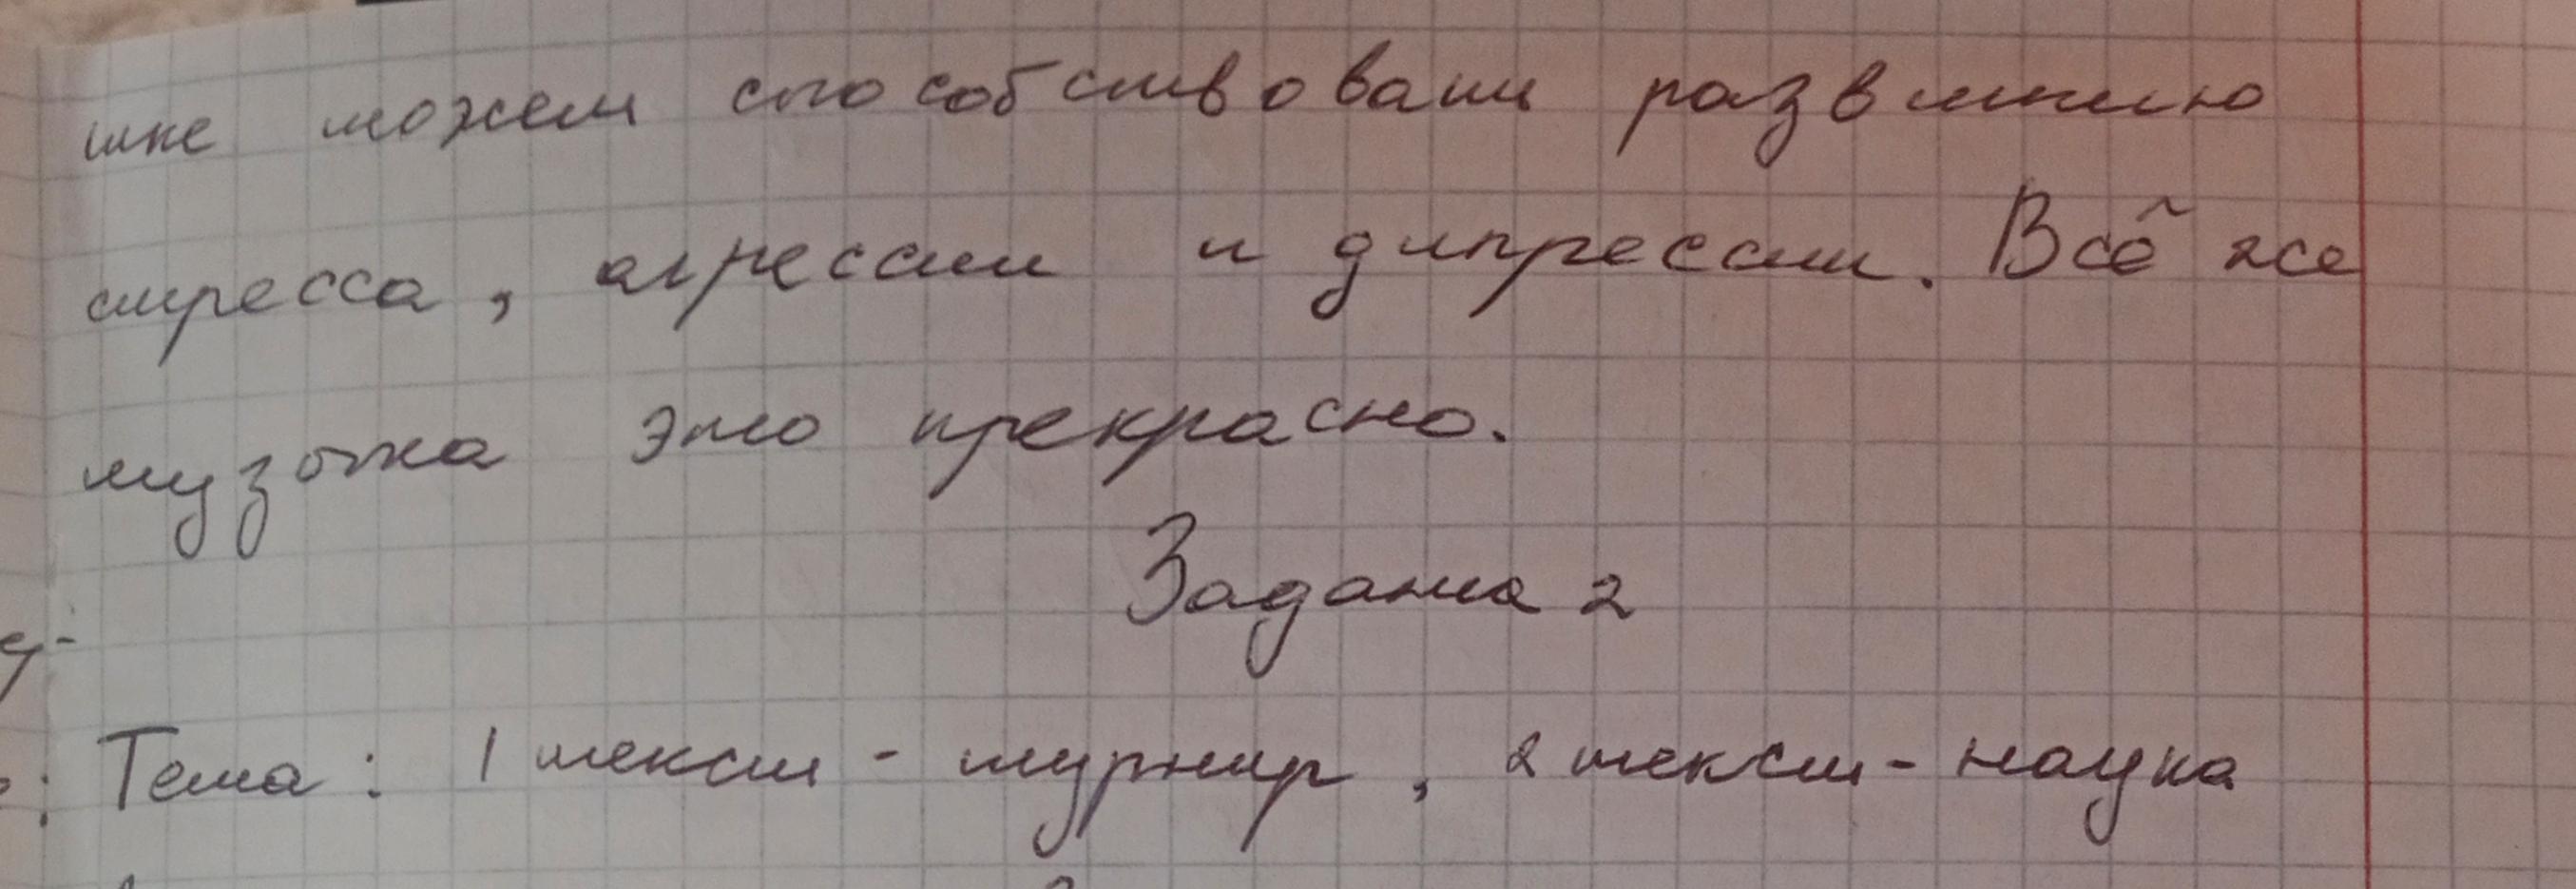 тке может способствовать развитию
стресса, агрессии и дипрессии. Всё же
музыка это прекрасно.
Задания 2
Тема: 1 текст - турнир, 2 текст - наука